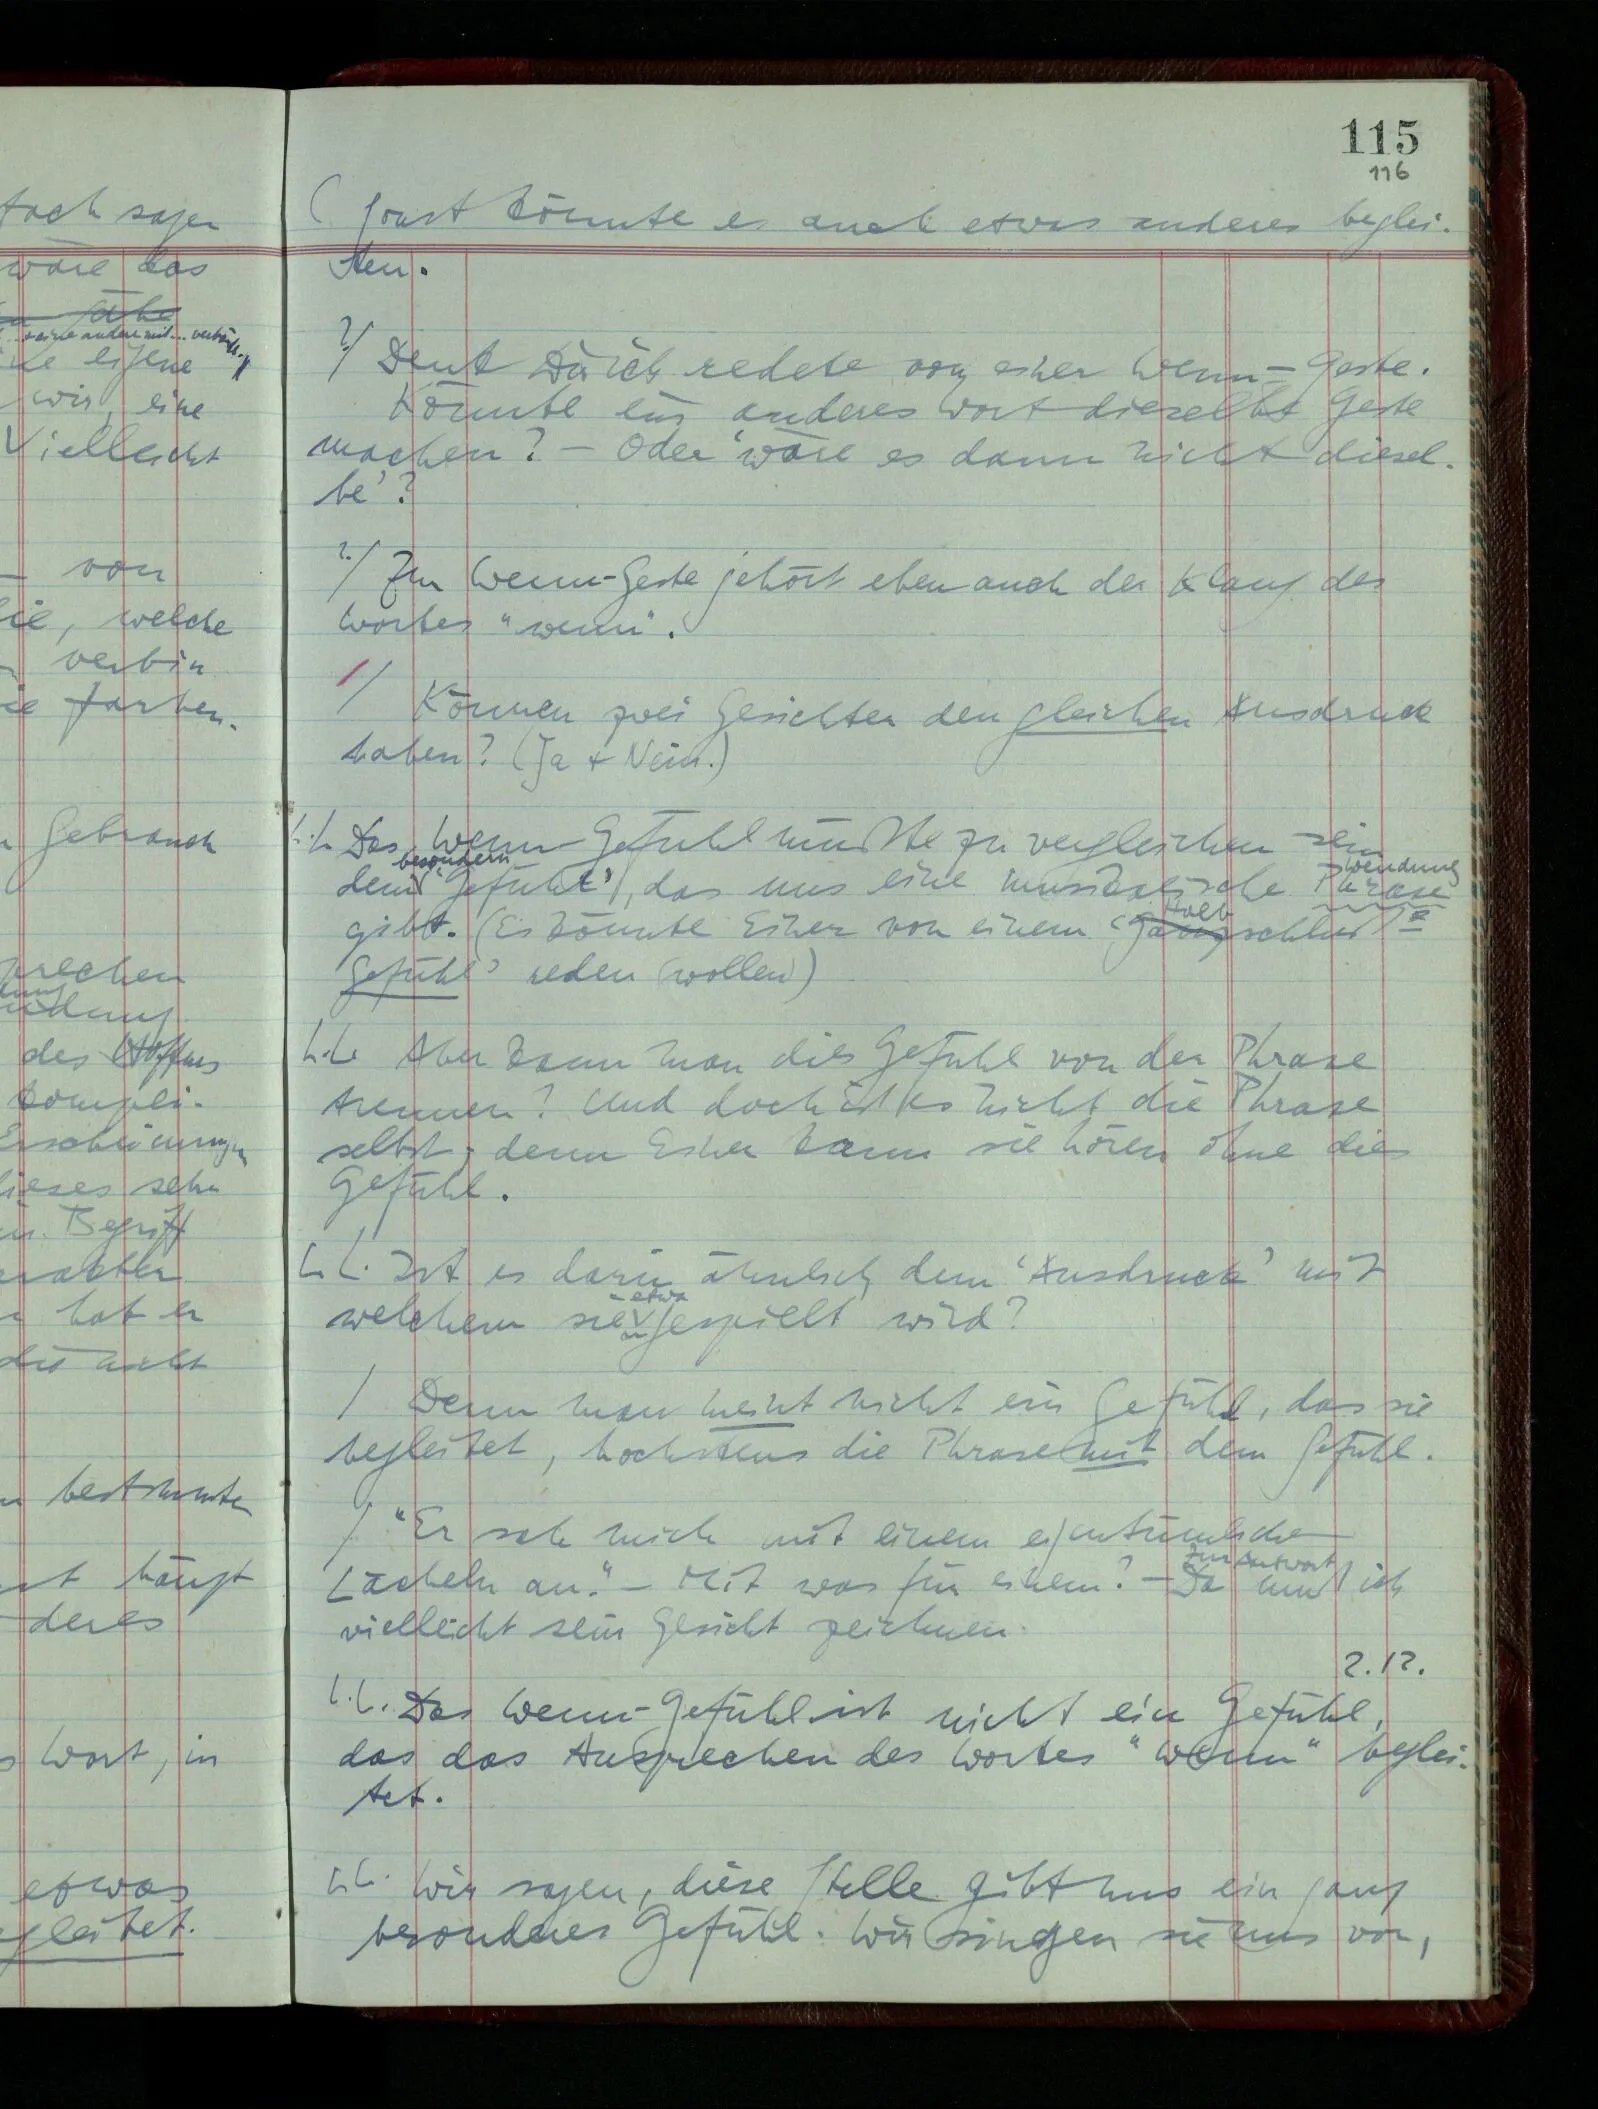 fach sagen
wäre das
ähe
eigene
wir, eine
Vielleicht
von
welche
verbin
Farben.
Gebrauch
des Hoffens
kompli-
Erscheinungen
dieses sehr
Begriff
hat er
nicht
bestimmten
hängt
deres
Wort, in
etwas
gleitet.
115
116
( sonst könnte es auch etwas anderes beglei-
ten.
?/ Denk redete von einer Wenn-Geste.
Könnte ein anderes Wort dieselbe Geste
machen? – Oder 'wäre es dann nicht diesel-
be'?
?/ Zur Wenn-Geste gehört eben auch der Klang des
Wortes "wenn".
/ Können zwei Gesichter den gleichen Ausdruck
haben? (Ja + Nein.)
Das Wenn-Gefühl müßte zu vergleichen sein
besondern
wendung
dem 'Gefühl', das uns eine musikalische Phrase
Halb
gibt. (Es könnte Einer von einem 'Ganzschluß
Gefühl' reden (wollen)
Aber kann man dies Gefühl von der Phrase
trennen? Und doch ist es nicht die Phrase
selbst; denn Einer kann sie hören ohne dies
Gefühl.
Ist es darin ähnlich dem 'Ausdruck' mit
etwa
welchem sie gespielt wird?
/ Denn man meint nicht ein Gefühl, das sie
begleitet, höchstens die Phrase mit dem Gefühl.
/ "Er sah mich mit einem eigentümlichen
zur Antwort
Lächeln an." – Mit was für einem? – Da muß ich
vielleicht sein Gesicht zeichnen.
2.12.
Das Wenn-Gefühl ist nicht ein Gefühl,
das das Aussprechen des Wortes "wenn" beglei-
tet.
Wir sagen, diese Stelle gibt uns ein ganz
besonderes Gefühl. Wir singen sie uns vor,